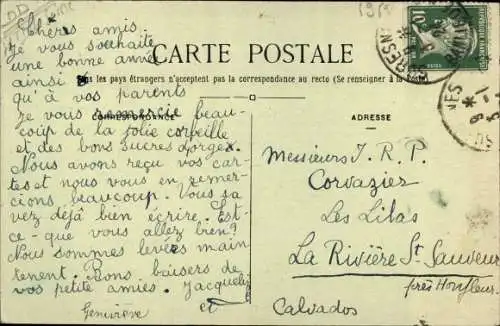 Chères amis.
Je vous souhaite
une bonne année
ainsi
qu'à vos parents
Je vous remercie beau-
coup de la jolie corbeille
et des bons sucres d'orge.
Nous avons reçu vos car-
tes et nous vous en remer-
cions beaucoup. Vous sa
vez déjà bien écrire. Est-
ce - que vous allez bien?
Nous sommes levées main
tenant. Bons baisers de
vos petite amies. Jacqueli
et
Geneviève
CARTE POSTALE
les pays étrangers n'acceptent pas la correspondance au recto (Se renseigner à la
CORRESPONDANCE
ADRESSE
Messieurs J. R. P.
Corvazier
Les Lilas
La Rivière St Sauveur
près Honfleur.
Calvados
10